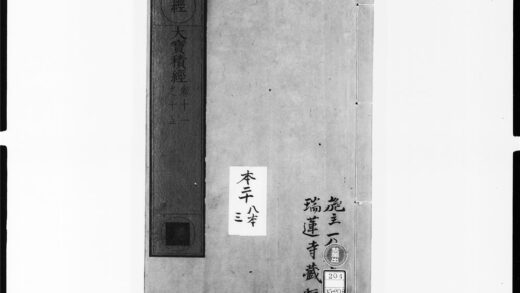 經
大寶積經卷十一
之十五
本二十八本
三
施主一
瑞蓮寺藏
204